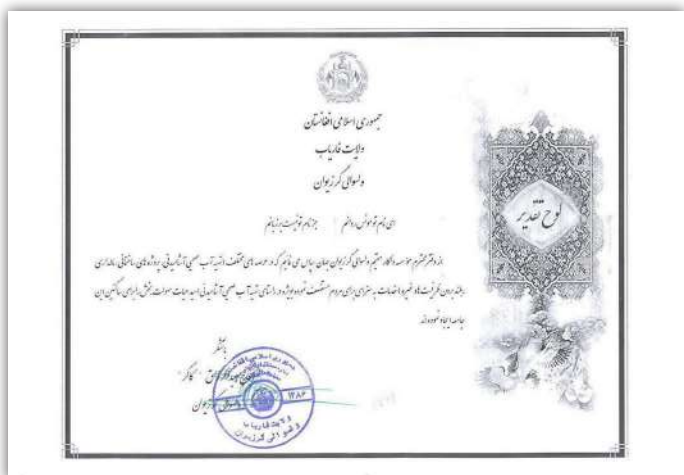 جمهوری اسلامی افغانستان
ولایت فاریاب
ولسوالی گرزیوان
لوح تقدیر
ای نام تو مونس روانم جز نام تو نیست بر زبانم
از دفتر محترم مؤسسه داکار مقیم ولسوالی گرزیوان جهان سپاس می نمایم که در عرصه های مختلف تهیه آب صحی آشامیدنی، پروژه های ساختمانی، مالداری
بلند بردن ظرفیت ها و غیره خدمات به سزای برای مردم مستضعف نموده بویژه در راستای تهیه آب صحی آشامیدنی امید حیات سهولت بخش را برای ساکنین این
جامعه ایجاد نموده اند
باتشکر
ولسوال گرزیوان
۱۲۸۶
ولایت فاریاب
ولسوالی گرزیوان